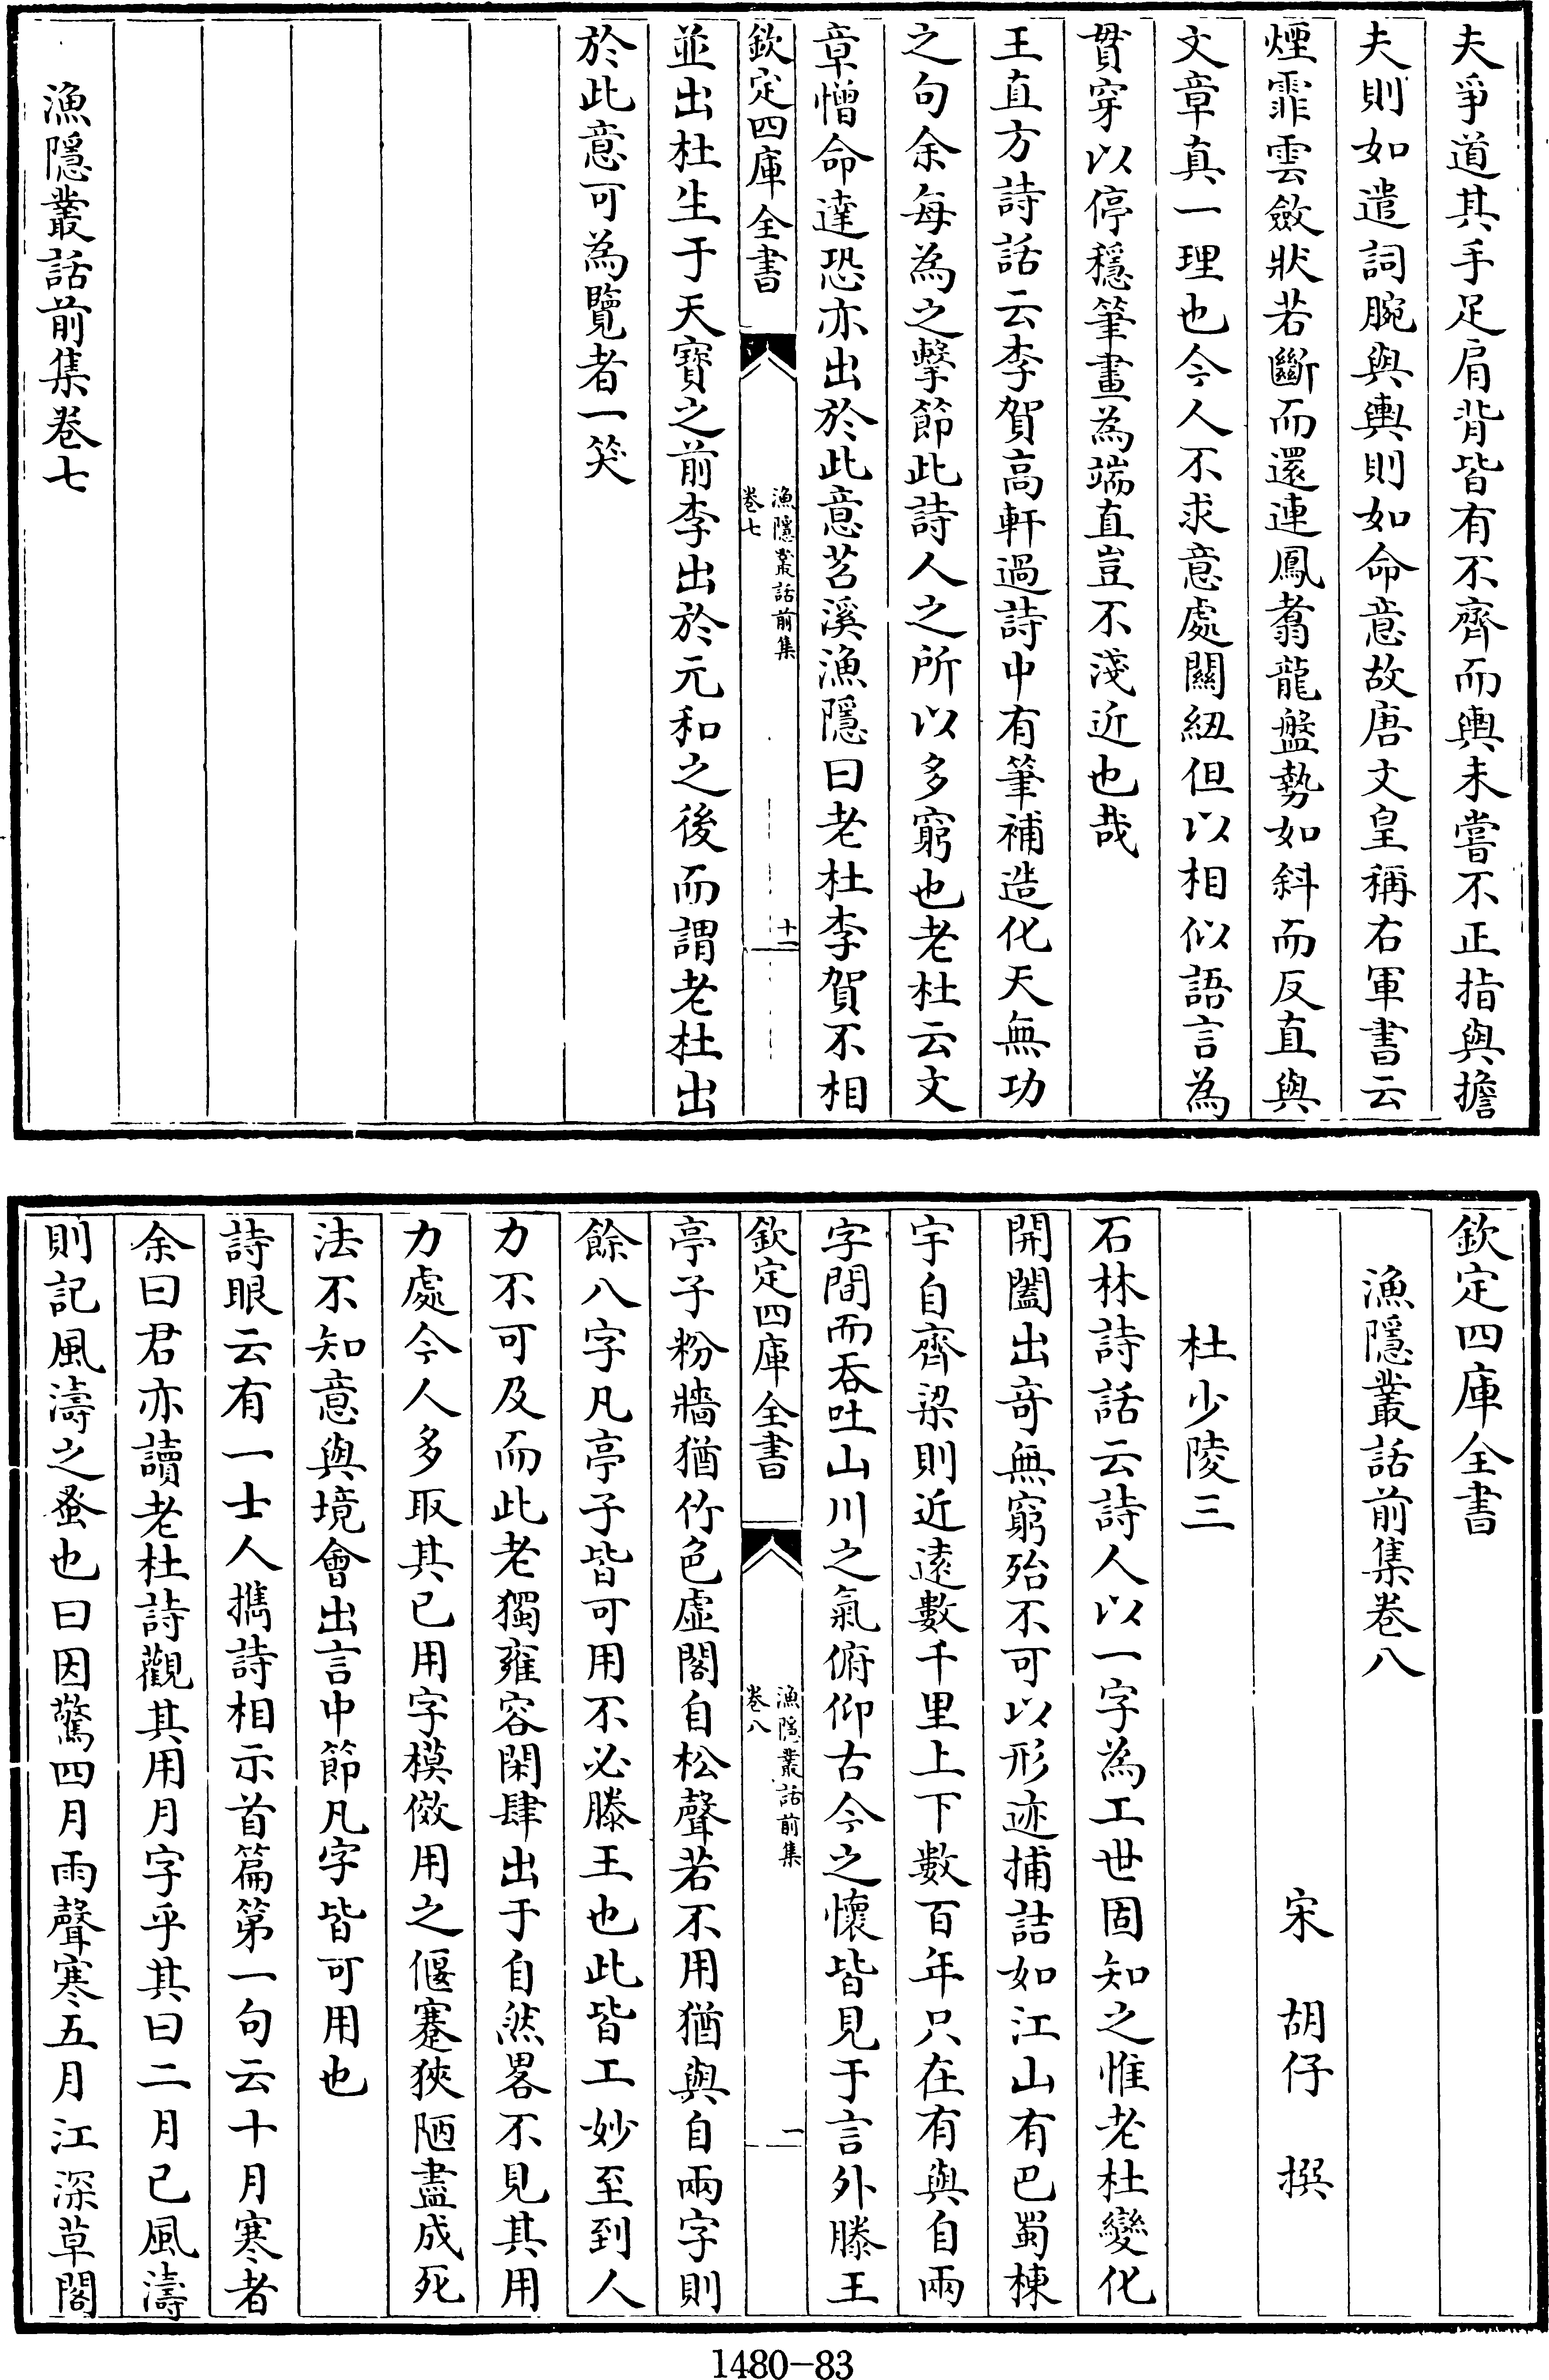 夫爭道其手足肩背皆有不齊而輿未嘗不正指與擔
夫則如遣詞腕與輿則如命意故唐文皇稱右軍書云
煙霏雲斂狀若斷而還連鳳翥龍盤勢如斜而反直與
文章真一理也今人不求意處關紐但以相似語言為
貫穿以停穩筆畫為端直豈不淺近也哉
王直方詩話云李賀高軒過詩中有筆補造化天無功
之句余每為之擊節此詩人之所以多窮也老杜云文
章憎命達恐亦出於此意苕溪漁隱曰老杜李賀不相
欽定四庫全書
漁隱叢話前集
卷七
十二
並出杜生于天寶之前李出於元和之後而謂老杜出
於此意可為覽者一笑
漁隱叢話前集卷七
欽定四庫全書
漁隱叢話前集卷八
宋 胡仔 撰
杜少陵三
石林詩話云詩人以一字為工世固知之惟老杜變化
開闔出奇無窮殆不可以形迹捕詰如江山有巴蜀棟
宇自齊梁則近遠數千里上下數百年只在有與自兩
字間而吞吐山川之氣俯仰古今之懷皆見于言外滕王
欽定四庫全書
漁隱叢話前集
卷八
一
亭子粉牆猶竹色虛閣自松聲若不用猶與自兩字則
餘八字凡亭子皆可用不必滕王也此皆工妙至到人
力不可及而此老獨雍容閑肆出于自然畧不見其用
力處今人多取其已用字模倣用之偃蹇狹陋盡成死
法不知意與境會出言中節凡字皆可用也
詩眼云有一士人攜詩相示首篇第一句云十月寒者
余曰君亦讀老杜詩觀其用月字乎其曰二月已風濤
則記風濤之蚤也曰因驚四月雨聲寒五月江深草閣
1480-83